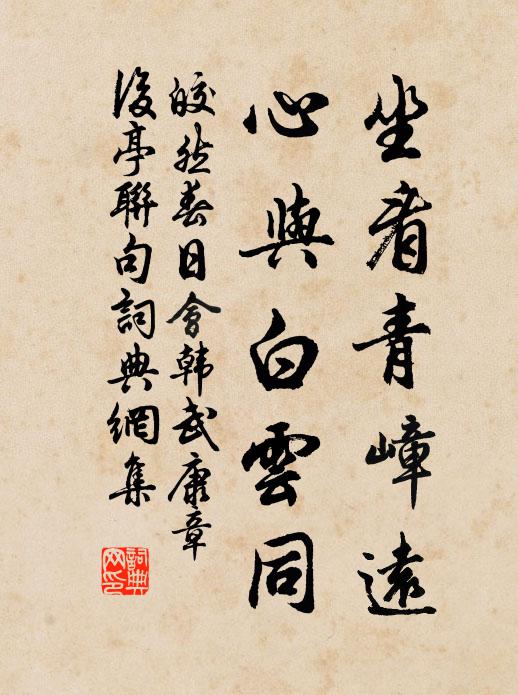 坐看青嶂遠
心與白雲同
皎然春日會韩武康章
後亭聯句詞典網集
詞典
网印